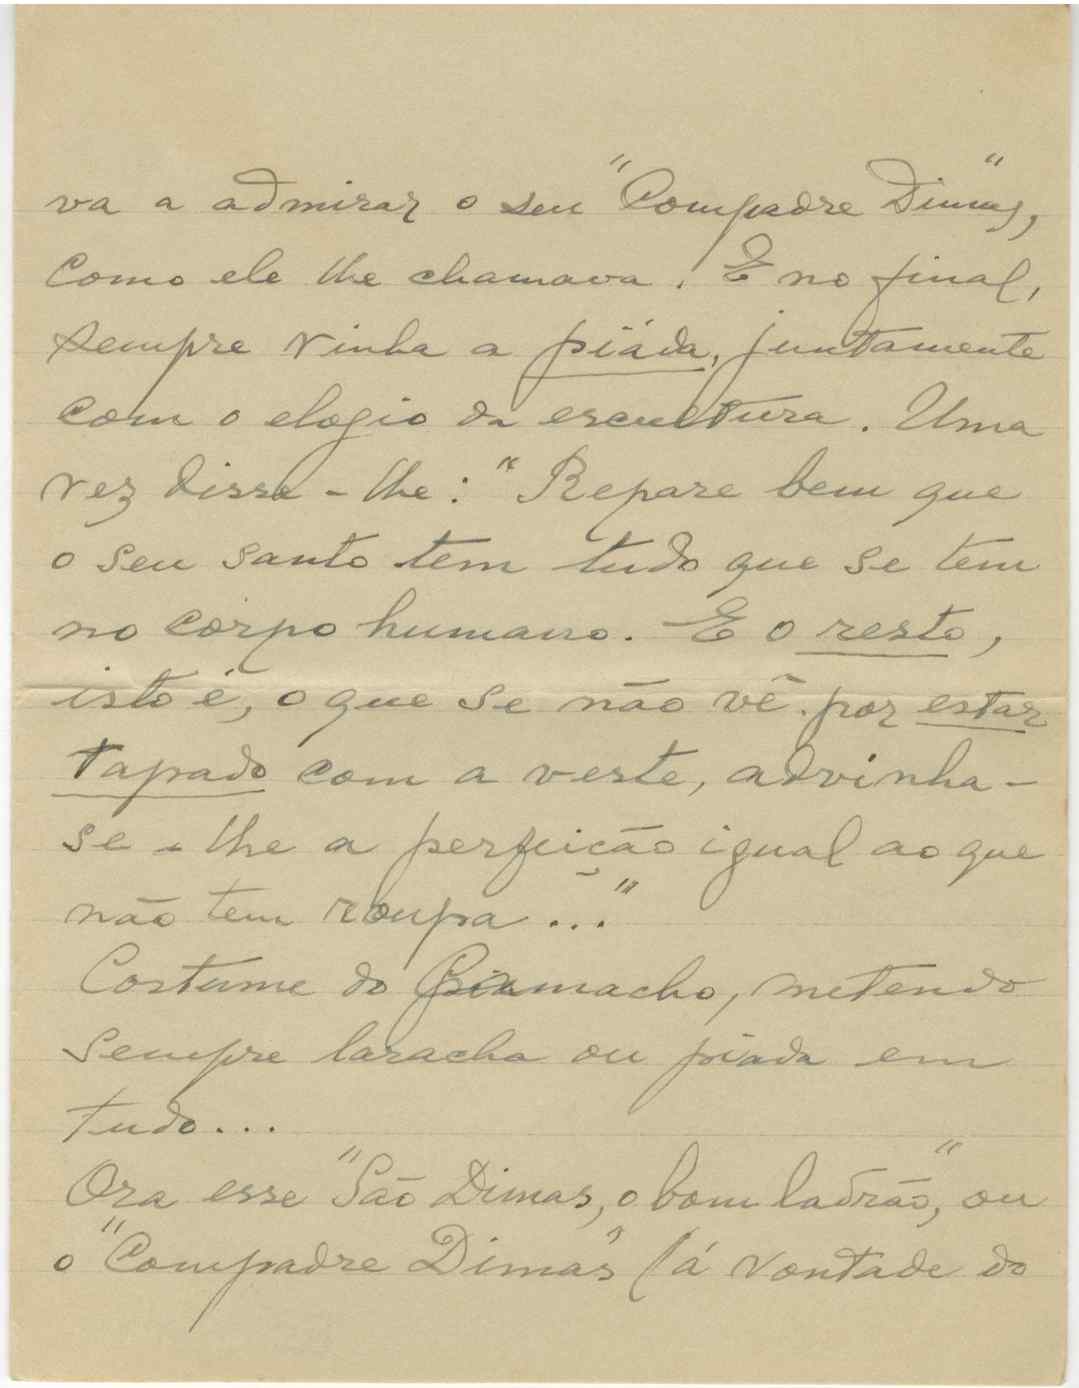 va a admirar o seu "Compadre Dimas",
como ele lhe chamava. E no final,
sempre vinha a piáda, juntamente
com o elogio da escultura. Uma
vez disse-lhe: "Repare bem que
o seu santo tem tudo que se tem
no corpo humano. E o resto,
isto é, o que se não vê por estar
tapado com a veste, advinha-
se-lhe a perfeição igual ao que
não tem roupa..."
Costume do metendo
sempre laracha ou piada em
tudo...
Ora esse "São Dimas, o bom ladrão", ou
o "Compadre Dimas" (á vontade do